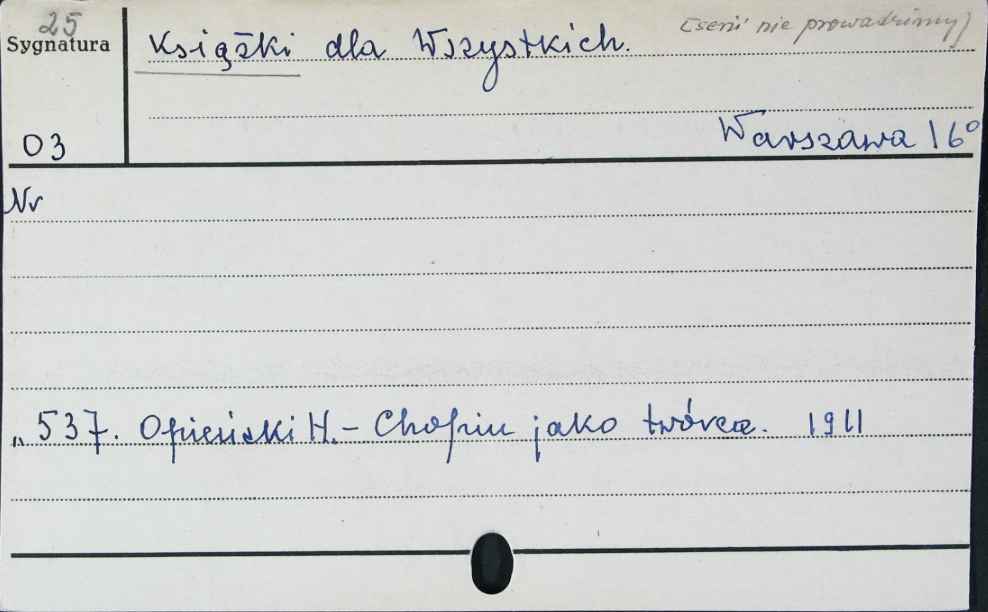 25
Sygnatura
03
Książki dla Wszystkich. [serii nie prowadzimy]
Warszawa 16°
Nr
„ 537. Opieński H. – Chopin jako twórca. 1911